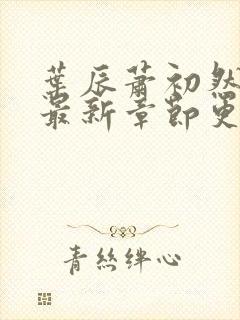 葉辰蕭初然
最新章節更
青絲絆心